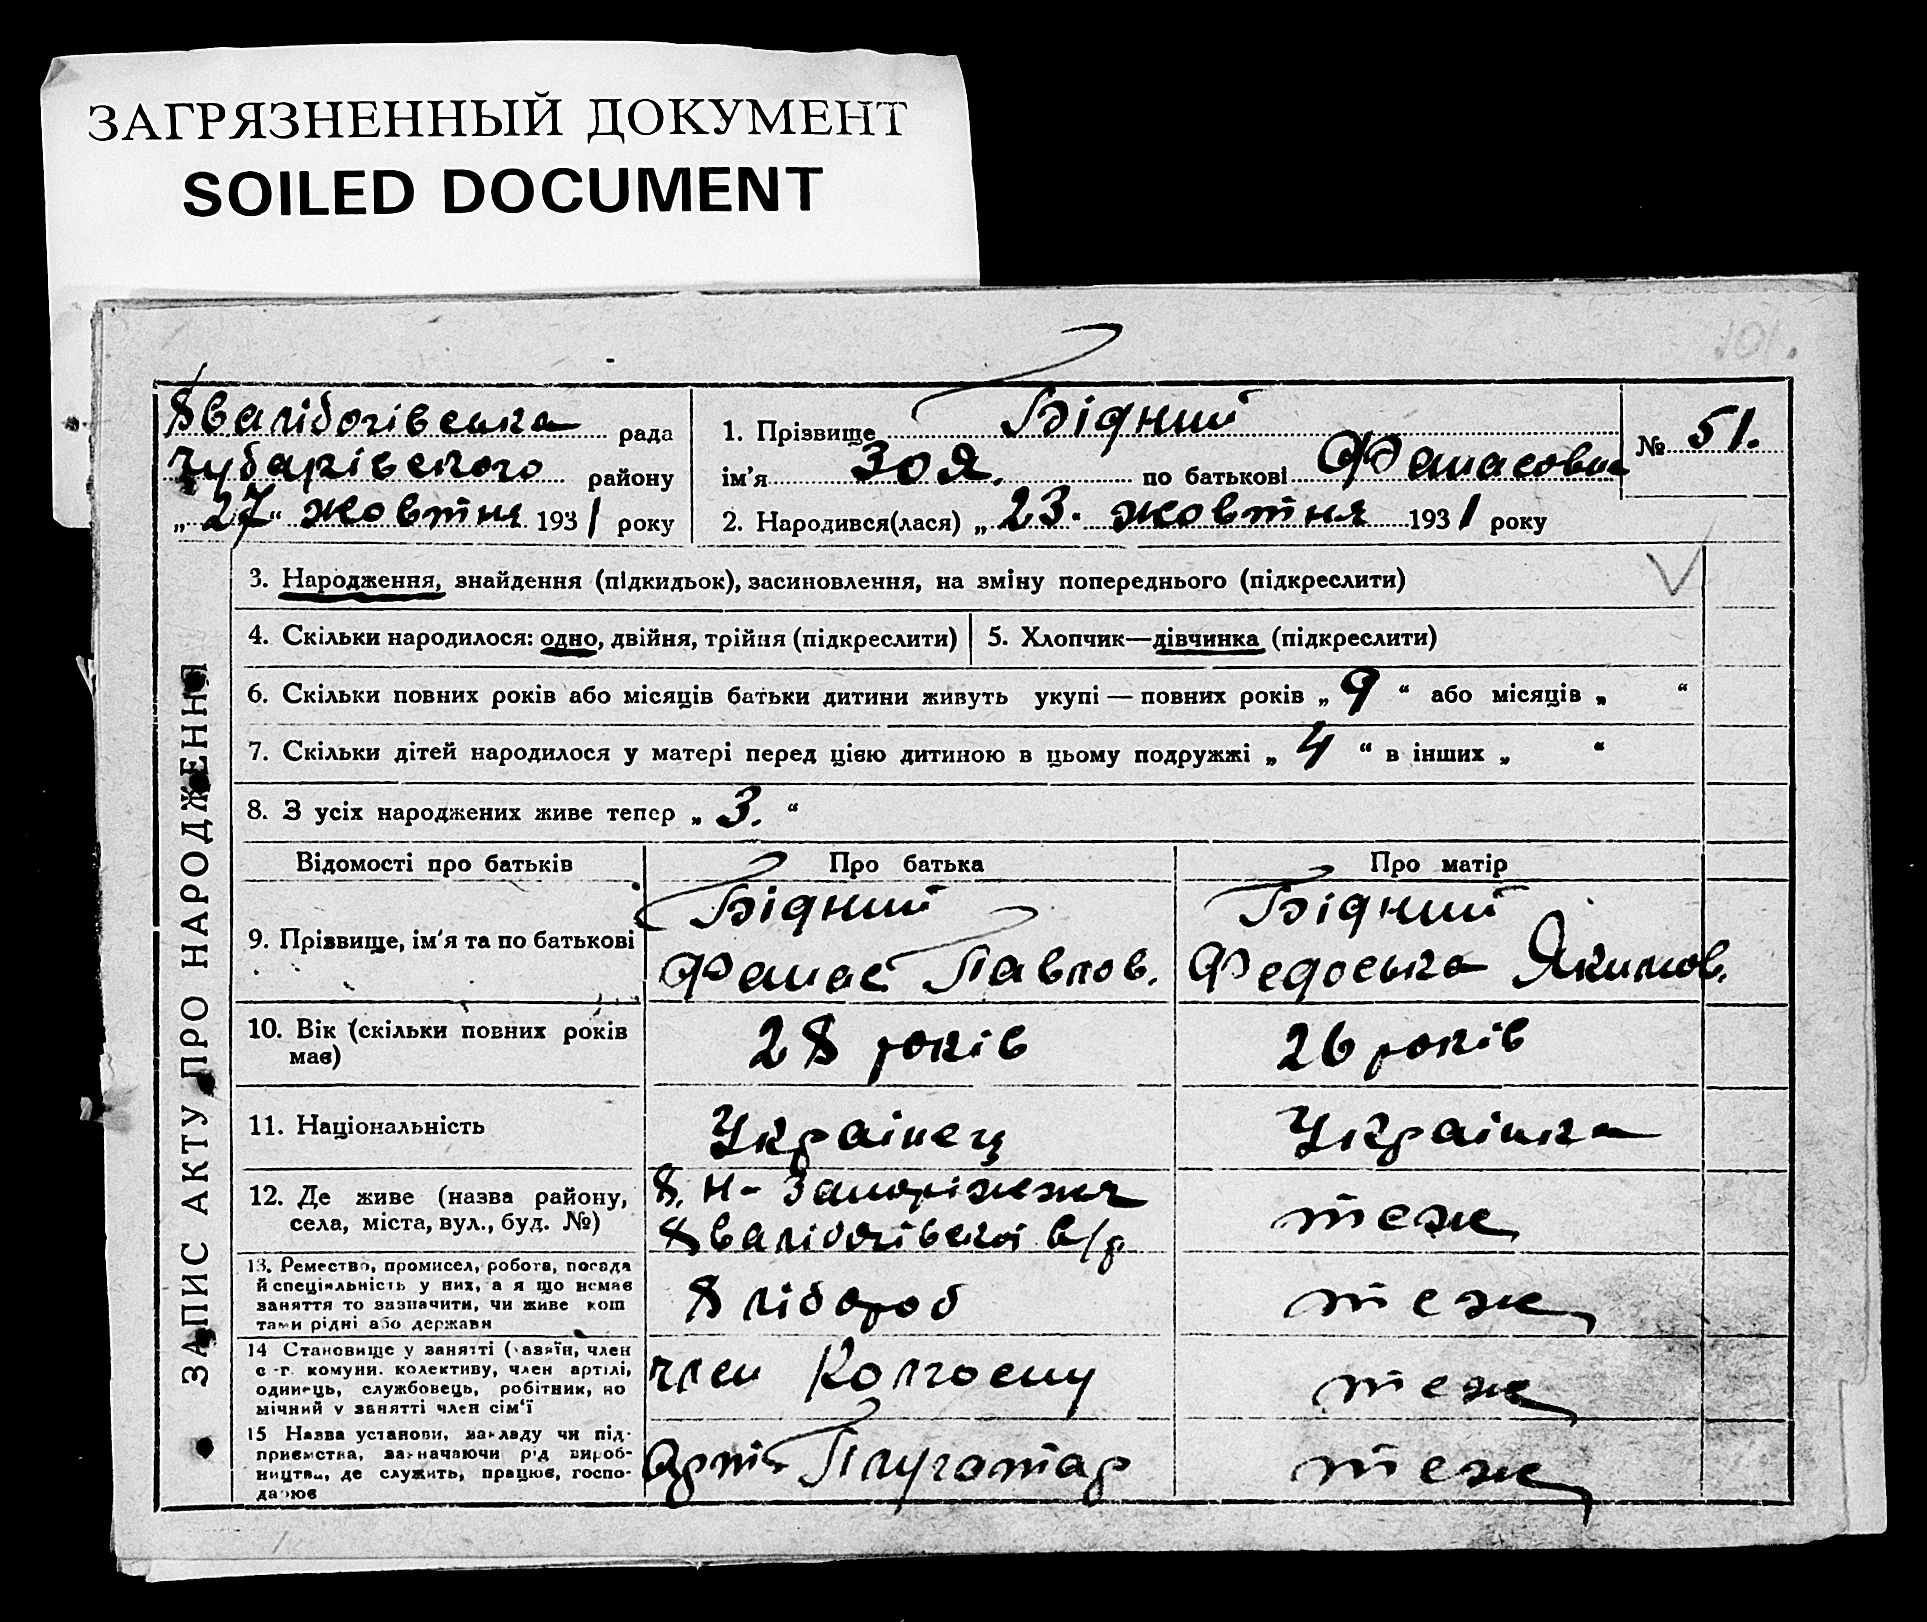 ЗАГРЯЗНЕННЫЙ ДОКУМЕНТ
SOILED DOCUMENT
101.
рада
Чубарівського району
„27“ жовтня 1931 року
1. Прізвище Бідний
ім'я Зоя. по батькові Фанасовна
2. Народився(лася) „23. жовтня 1931 року
№ 51.
ЗАПИС АКТУ ПРО НАРОДЖЕННЯ
3. Народження, знайдення (підкидьок), засиновлення, на зміну попереднього (підкреслити)
4. Скільки народилося: одно, двійня, трійня (підкреслити)
5. Хлопчик—дівчинка (підкреслити)
6. Скільки повних років або місяців батьки дитини живуть укупі — повних років „ 9 “ або місяців „ “
7. Скільки дітей народилося у матері перед цією дитиною в цьому подружжі „ 4 “ в інших „ “
8. З усіх народжених живе тепер „ 3. “
Відомості про батьків
Про батька
Про матір
9. Прізвище, ім'я та по батькові
Бідний
Фанас Павлов.
Бідний
Федоська Якимов.
10. Вік (скільки повних років
має)
28 років
26 років
11. Національність
Українец
Українка
12. Де живе (назва району,
села, міста, вул., буд. №)
Н-Запоріжжя
в/р
теж
13. Ремество, промисел, робота, посада
й спеціяльність у них, а я що немає
заняття то зазначити, чи живе кош
тами рідні або держави
Хлібороб
теж
14 Становище у занятті (хазяїн, член
с-г. комуни. колективу, член артілі,
одинець, службовець, робітник, по
мічний у занятті член сім'ї
член Колгоспу
теж
15 Назва установи, закладу чи під-
приємства, зазначаючи рід вироб-
ництва, де служить, працює, госпо-
дарює
Арт. Плугатар
теж